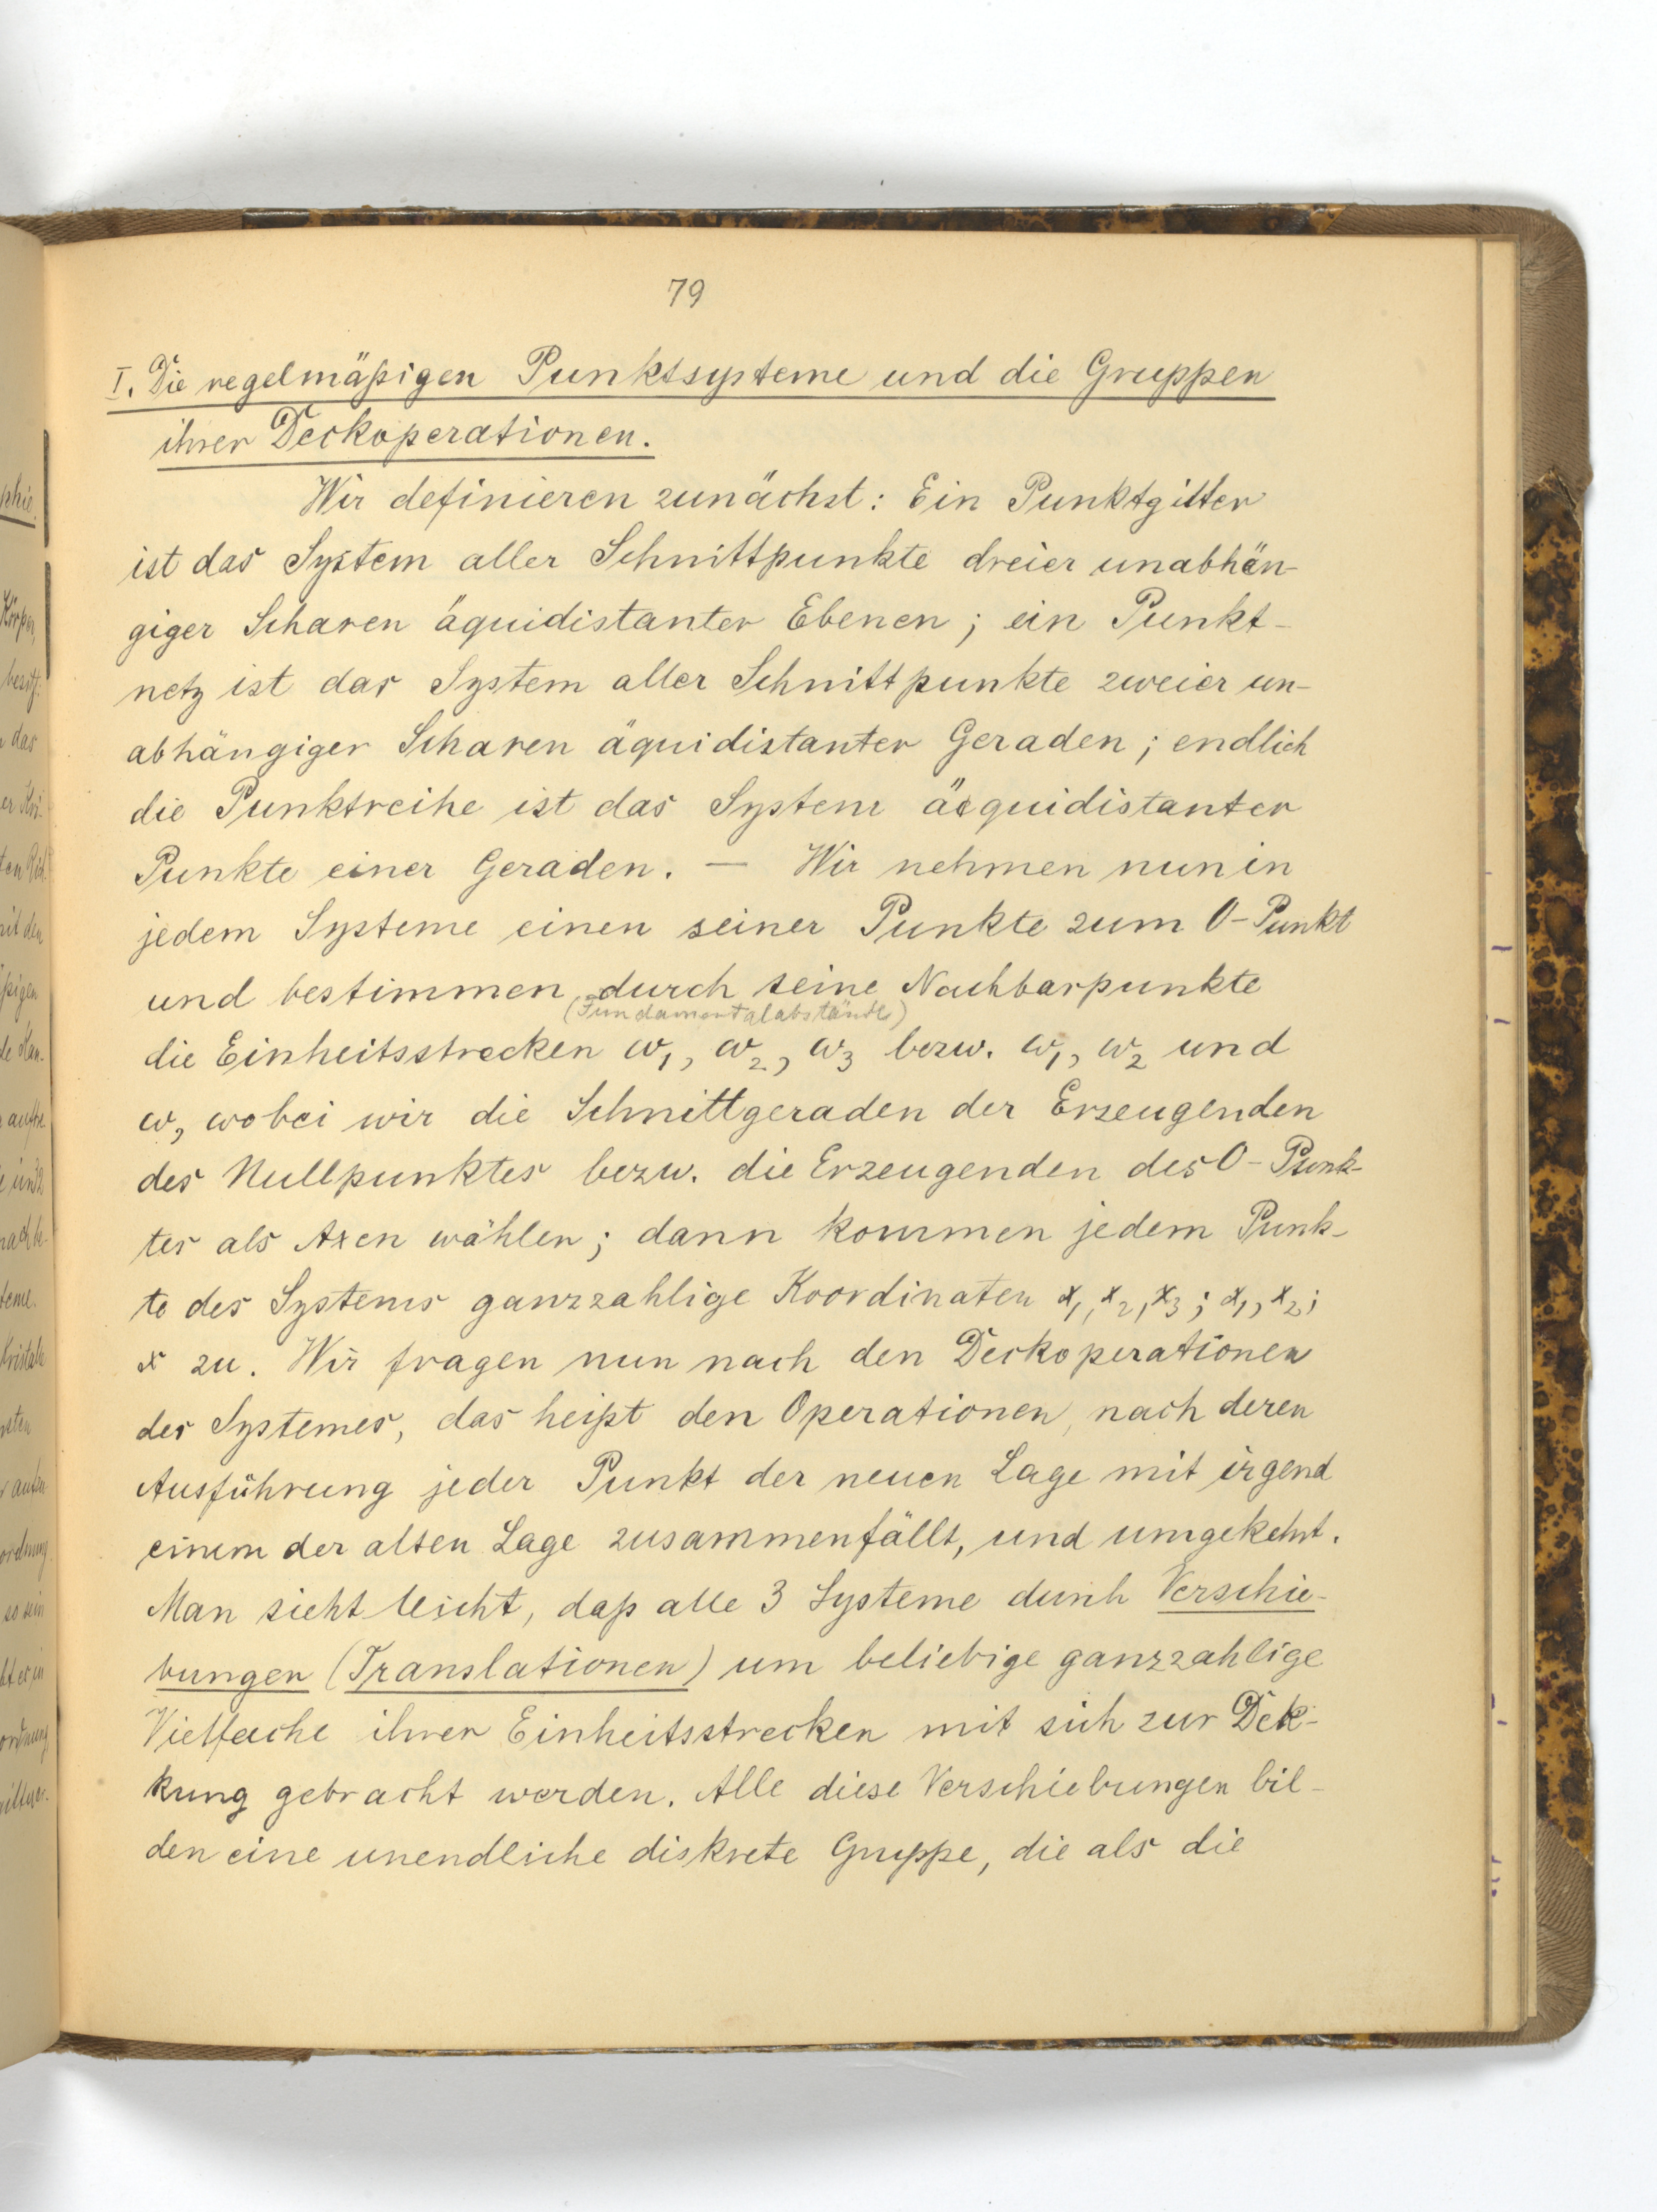 79
I. Die regelmäßigen Punktsysteme und die Gruppen
ihrer Deckoperationen.
Wir definieren zunächst: Ein Punktgitter
ist das System aller Schnittpunkte dreier unabhän-
giger Scharen äquidistanter Ebenen; ein Punkt-
netz ist das System aller Schnittpunkte zweier un-
abhängiger Scharen äquidistanter Geraden; endlich
die Punktreihe ist das System äquidistanter
Punkte einer Geraden. — Wir nehmen nun in
jedem Systeme einen seiner Punkte zum O-Punkt
und bestimmen durch seine Nachbarpunkte
(Fundamentalabstände)
die Einheitsstrecken ω₁, ω₂, ω₃ bezw. ω₁, ω₂ und
ω, wobei wir die Schnittgeraden der Erzeugenden
des Nullpunktes bezw. die Erzeugenden des O-Punk-
tes als Axen wählen; dann kommen jedem Punk-
te des Systems ganzzahlige Koordinaten x₁, x₂, x₃; x₁, x₂;
x zu. Wir fragen nun nach den Deckoperationen
des Systemes, das heißt den Operationen, nach deren
Ausführung jeder Punkt der neuen Lage mit irgend
einem der alten Lage zusammenfällt, und umgekehrt.
Man sieht leicht, daß alle 3 Systeme durch Verschie-
bungen (Translationen) um beliebige ganzzahlige
Vielfache ihrer Einheitsstrecken mit sich zur Dek-
kung gebracht werden. Alle diese Verschiebungen bil-
den eine unendliche diskrete Gruppe, die als die